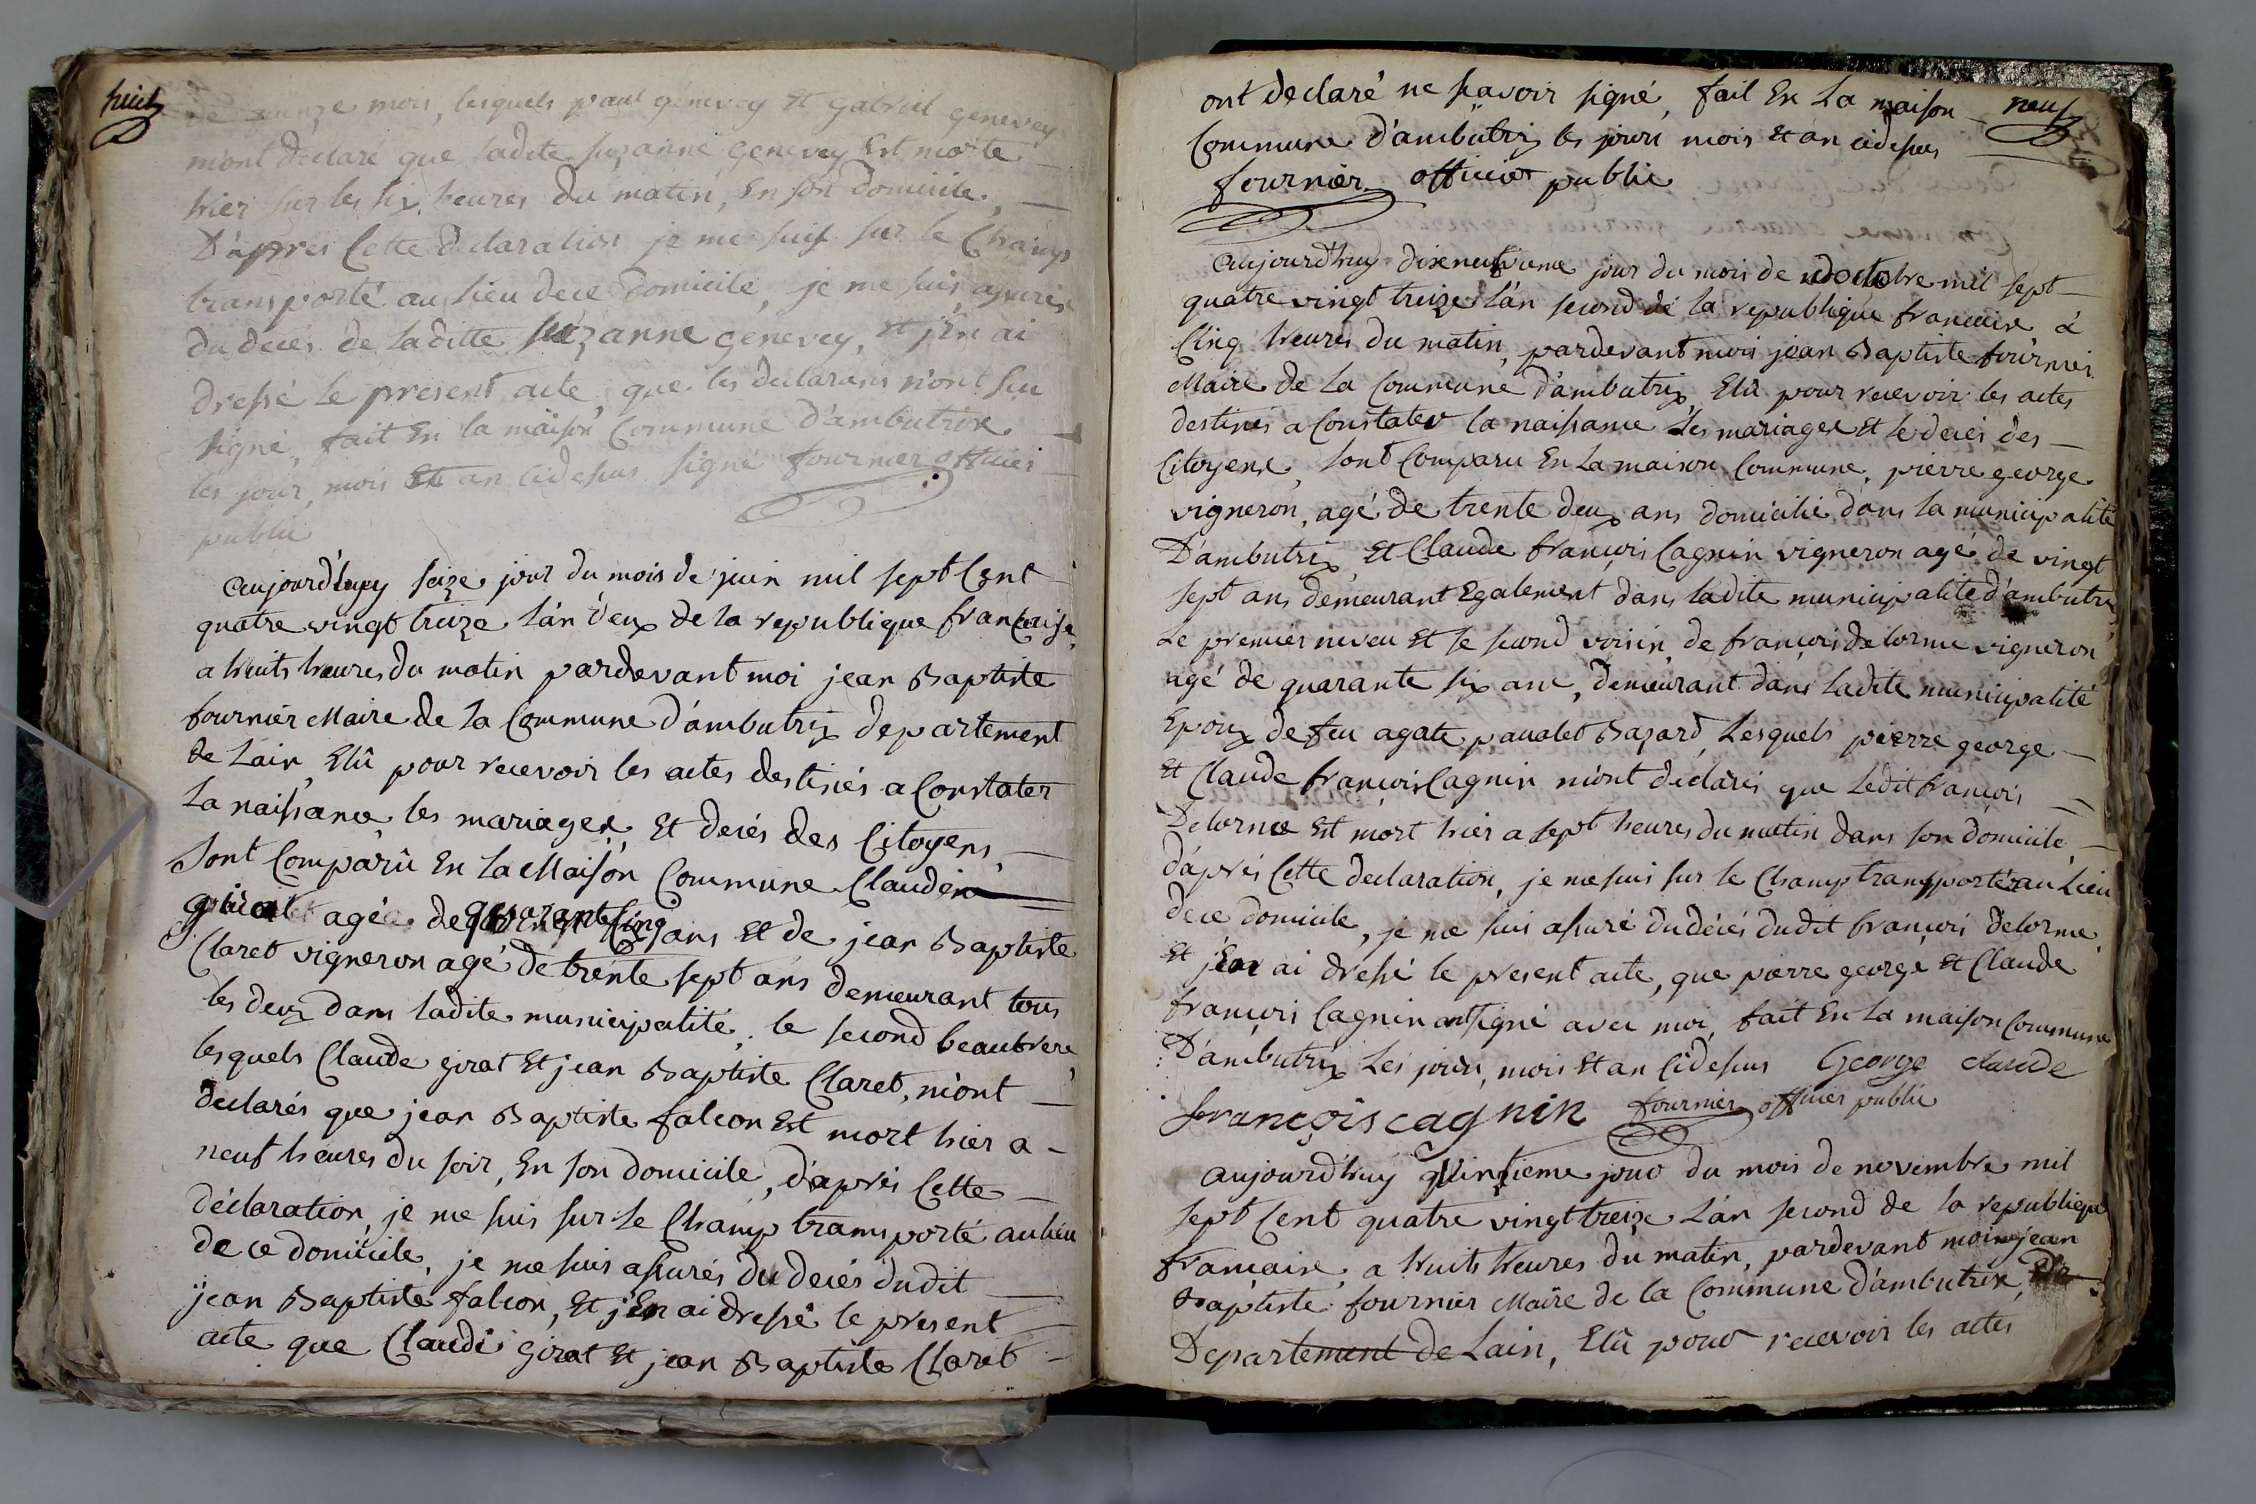 huit
de quinze mois, lesquels paul genevey et gabriel genevey
m'ont declaré que ladite suzanne genevey Est morte
hier sur les six heures du matin, En son domicile,
D'apres Cette declaration je me suis sur le Champ
transporté au Lieu de ce domicile, je me suis assurés
du decés de laditte suzanne genevey, et j'En ai
dressé le present acte que les declarans n'ont scu
signé, fait En la maison Commune d'ambutrix
les jour, mois Et an cidessus signé fournier officier
public
aujourd'huy seize jour du mois de juin mil sept Cent
quatre vingt treize L'an deux de la republique française
a huits heures du matin pardevant moi jean Baptiste
fournier Maire de la Commune d'ambutrix departement
de Lain, Elû pour recevoir les actes destinés a Constater
La naissance les mariages, Et decés des Citoyens,
Sont Comparû En La Maison Commune Claude
girat agé de quarante Cinq ans Et de jean Baptiste
Claret vigneron agé de trente sept ans demeurant tous
les deux dans ladite municipalité, le second beaufrere,
lesquels Claude girat Et jean Baptiste Claret, m'ont
declarés que jean Baptiste falcon Est mort hier a
neuf heures du soir, En son domicile, d'aprés Cette
déclaration, je me suis sur le Champ transporté au lieu
de ce domicile, je me suis assurés du decés dudit
jean Baptiste falcon, Et j'En ai dressé le present
acte que Claude girat Et jean Baptiste Claret
neuf
ont declaré ne sçavoir signé, fait En La maison
Commune d'ambutrix les jour mois Et an cidessus
fournier officier public
aujourd'huy dixneuvieme jour du mois de octobre mil sept
quatre vingt treize L'an second de la republique francaise à
Cinq heures du matin, pardevant moi jean Baptiste fournier
Maire de La Commune d'ambutrix, Elû pour recevoir les actes
destinés a Constater la naissance Les mariages Et le decés des
Citoyens, sont Comparu En La maison Commune, pierre george
vigneron, agé de trente deux ans domicilié dans la municipalité
D'ambutrix, Et Claude françois Cagnin vigneron agé de vingt
sept ans demeurant Egalement dans ladite municipalité d'ambutrix
Le premier neveu Et le second voisin de françois delorme vigneron
agé de quarante six ans, demeurant dans ladite municipalité
Epoux de feu agate Bazard, Lesquels pierre george
Et Claude françois Cagnin m'ont déclarés que Ledit françois
Delorme Est mort hier a sept heures du matin dans son domicile,
d'aprés Cette declaration, je me suis sur le Champ transporté au Lieu
de ce domicile, je me suis assuré du décés dudit françois delorme,
Et j'En ai dressé le present acte, que pierre george Et Claude
françois Cagnin ont signé avec moi, fait En La maison Commune
D'ambutrix Les jour, mois Et an Cidessus George claude
françois cagnin fournier officier public
aujourd'huy quinzieme jour du mois de novembre mil
sept Cent quatre vingt treize L'an second de la republique
francaise, a huits heures du matin, pardevant moi jean
Baptiste fournier Maire de la Commune d'ambutrix,
Departement de Lain, Elû pour recevoir les actes